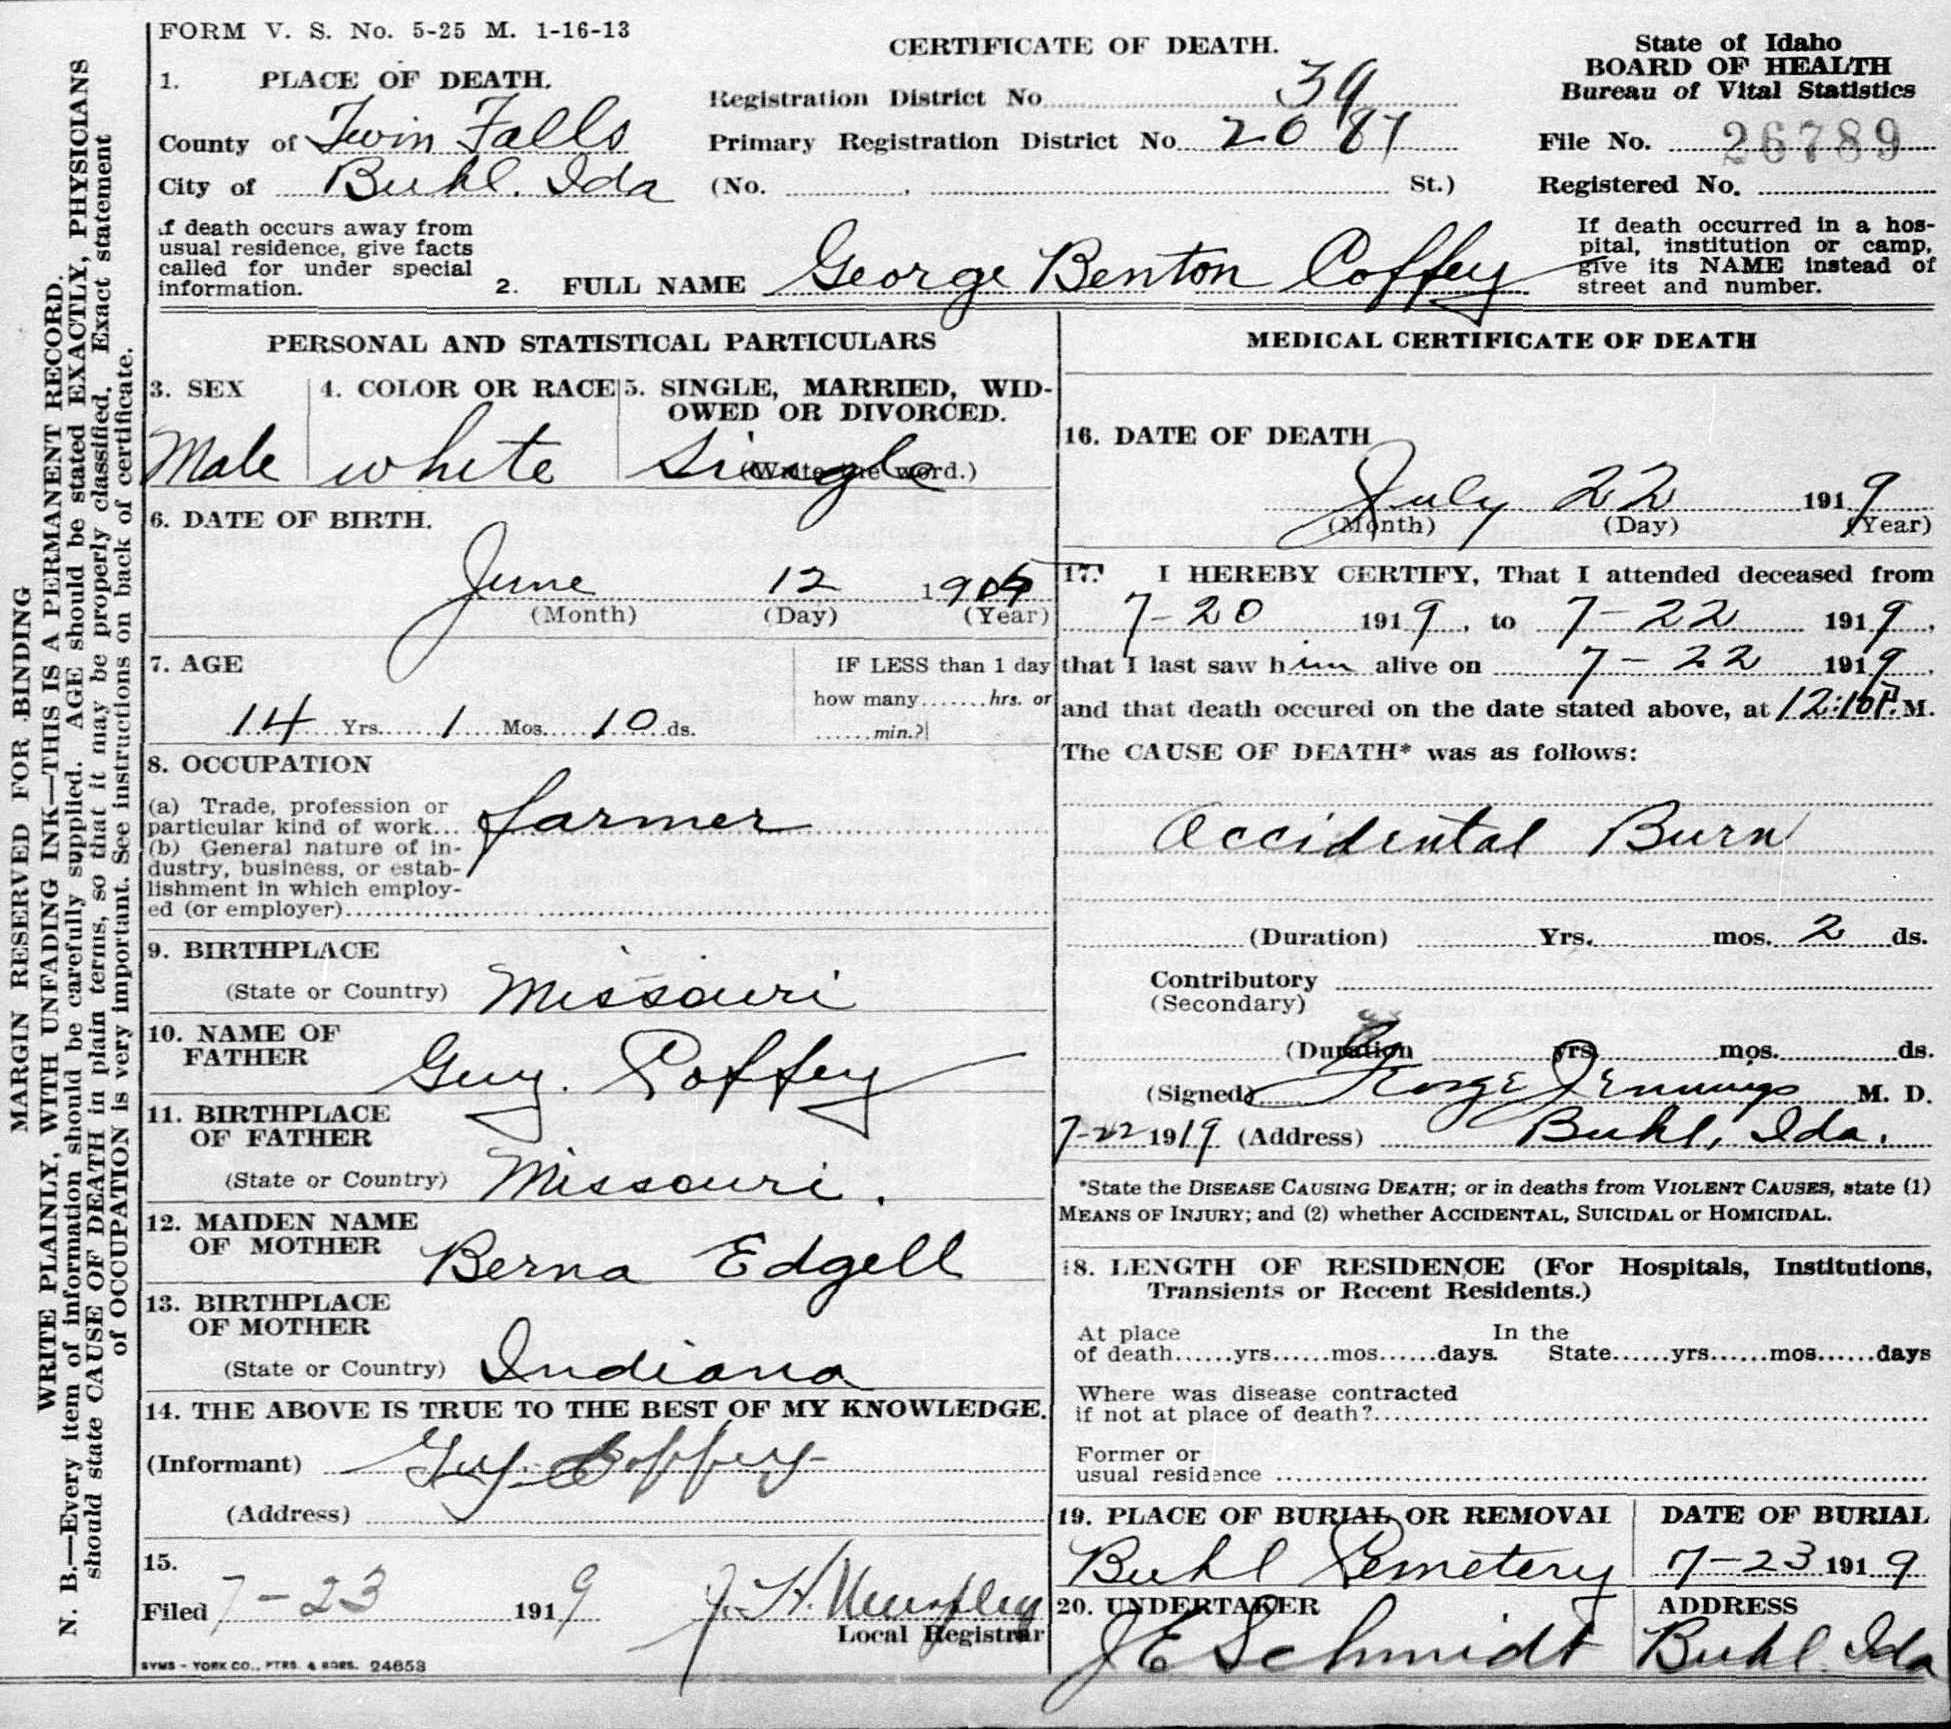 FORM V. S. No. 5-25 M. 1-16-13
CERTIFICATE OF DEATH.
State of Idaho
BOARD OF HEALTH
Bureau of Vital Statistics
1. PLACE OF DEATH.
Registration District No. 39
County of Twin Falls
Primary Registration District No. 2087
File No. 26789
City of Buhl. Ida
(No. , St.)
Registered No.
If death occurs away from
usual residence, give facts
called for under special
information.
2. FULL NAME George Benton Coffey
If death occurred in a hos-
pital, institution or camp,
give its NAME instead of
street and number.
PERSONAL AND STATISTICAL PARTICULARS
3. SEX
Male
4. COLOR OR RACE
white
5. SINGLE, MARRIED, WID-
OWED OR DIVORCED.
Single
(Write the word.)
6. DATE OF BIRTH.
June 12 1905
(Month) (Day) (Year)
7. AGE
14 Yrs. 1 Mos. 10 ds.
IF LESS than 1 day
how many hrs. or
min.?
8. OCCUPATION
(a) Trade, profession or
particular kind of work... farmer
(b) General nature of in-
dustry, business, or estab-
lishment in which employ-
ed (or employer)
9. BIRTHPLACE
(State or Country) Missouri
10. NAME OF
FATHER
Guy. Coffey
11. BIRTHPLACE
OF FATHER
(State or Country) Missouri.
12. MAIDEN NAME
OF MOTHER
Berna Edgell
13. BIRTHPLACE
OF MOTHER
(State or Country) Indiana
14. THE ABOVE IS TRUE TO THE BEST OF MY KNOWLEDGE.
(Informant) Guy Coffey
(Address)
15.
Filed 7-23 1919
J. H. Murphey
Local Registrar
SYMS-YORK CO., PTRS. & BDRS. 24653
MEDICAL CERTIFICATE OF DEATH
16. DATE OF DEATH
July 22 1919
(Month) (Day) (Year)
17. I HEREBY CERTIFY, That I attended deceased from
7-20 1919, to 7-22 1919,
that I last saw him alive on 7-22 1919,
and that death occured on the date stated above, at 12:10 P. M.
The CAUSE OF DEATH* was as follows:
Accidental Burn
(Duration) Yrs. mos. 2 ds.
Contributory
(Secondary)
(Duration yrs. mos. ds.
(Signed) George Jennings M. D.
7-22 1919 (Address) Buhl, Ida.
*State the DISEASE CAUSING DEATH; or in deaths from VIOLENT CAUSES, state (1)
MEANS OF INJURY; and (2) whether ACCIDENTAL, SUICIDAL or HOMICIDAL.
18. LENGTH OF RESIDENCE (For Hospitals, Institutions,
Transients or Recent Residents.)
At place In the
of death......yrs......mos......days. State......yrs......mos......days
Where was disease contracted
if not at place of death?
Former or
usual residence
19. PLACE OF BURIAL OR REMOVAL
Buhl Cemetery
DATE OF BURIAL
7-23 1919
20. UNDERTAKER
J E Schmidt
ADDRESS
Buhl Ida
MARGIN RESERVED FOR BINDING
WRITE PLAINLY, WITH UNFADING INK—THIS IS A PERMANENT RECORD.
N. B.—Every item of information should be carefully supplied. AGE should be stated EXACTLY, PHYSICIANS
should state CAUSE OF DEATH in plain terms, so that it may be properly classified. Exact statement
of OCCUPATION is very important. See instructions on back of certificate.